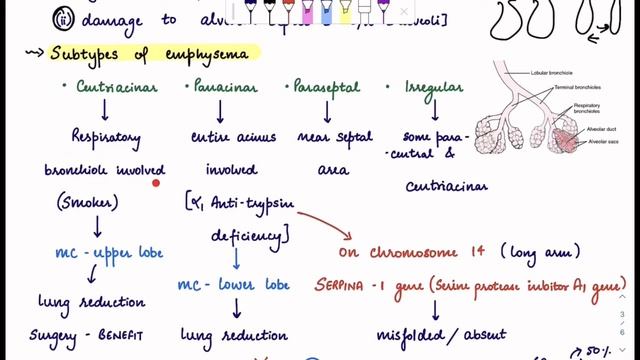 (ii) damage to
↝ Subtypes of emphysema
• Centriacinar • Panacinar • Paraseptal • Irregular
Respiratory entire acinus near septal some para-
bronchiole involved involved area -central &
(Smoker) [α1 Anti-trypsin centriacinar
deficiency]
MC - upper lobe on chromosome 14 (long arm)
MC - lower lobe SERPINA - 1 gene (Serine protease inbitor A1 gene)
lung reduction
Surgery - BENEFIT lung reduction misfolded / absent
50%
Lobular bronchiole
Terminal bronchioles
Respiratory
bronchioles
Alveolar duct
Alveolar sacs
3
/
6